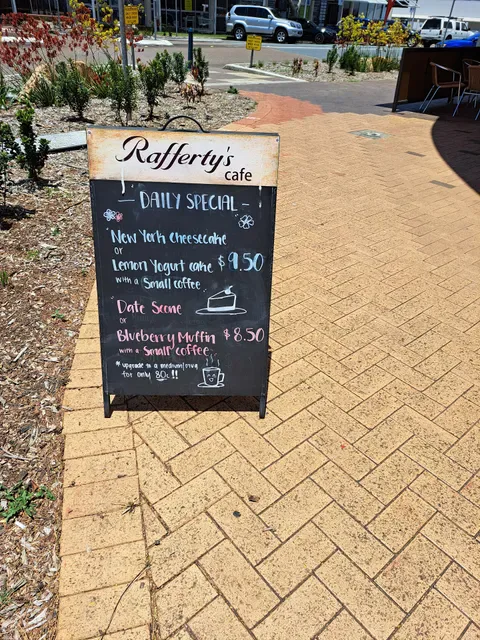 Rafferty's
cafe
— DAILY SPECIAL —
New York Cheesecake
or
Lemon Yogurt cake $9.50
with a Small coffee
Date Scone
or
Blueberry Muffin $8.50
with a Small coffee
* upgrade to a medium/mug
for only 80c!!